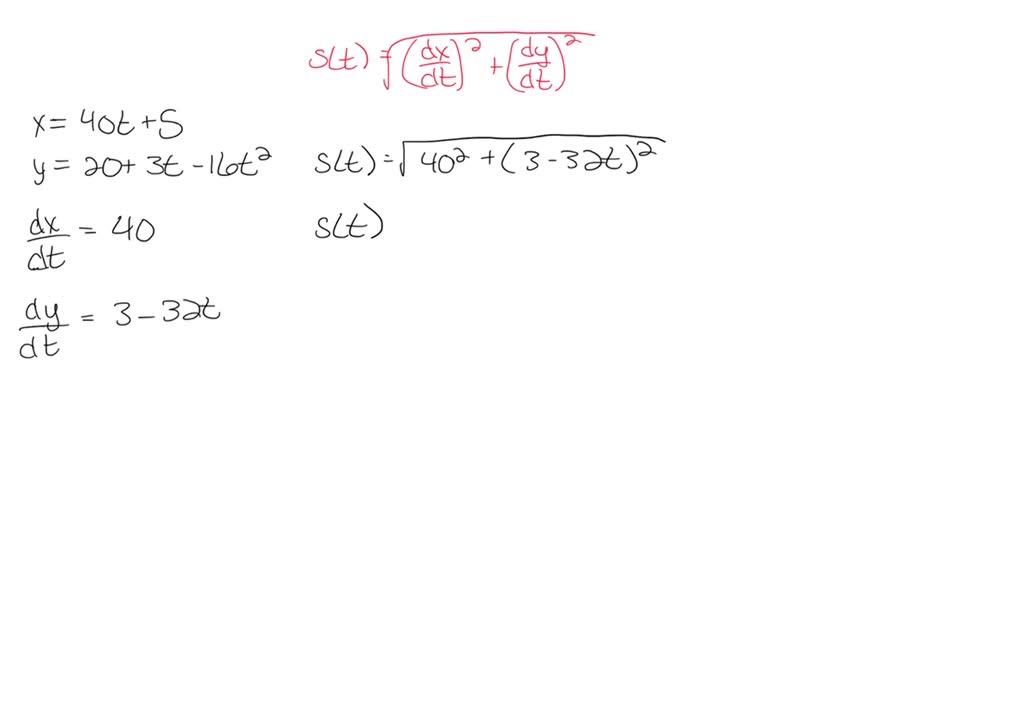 s(t) = √((dx/dt)² + (dy/dt)²)
x = 40t + 5
y = 20 + 3t - 16t²
s(t) = √(40² + (3 - 32t)²)
dx/dt = 40
s(t)
dy/dt = 3 - 32t